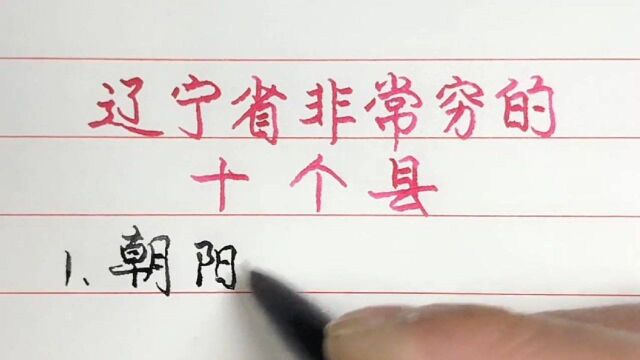 辽宁省非常穷的
十个县
1、朝阳